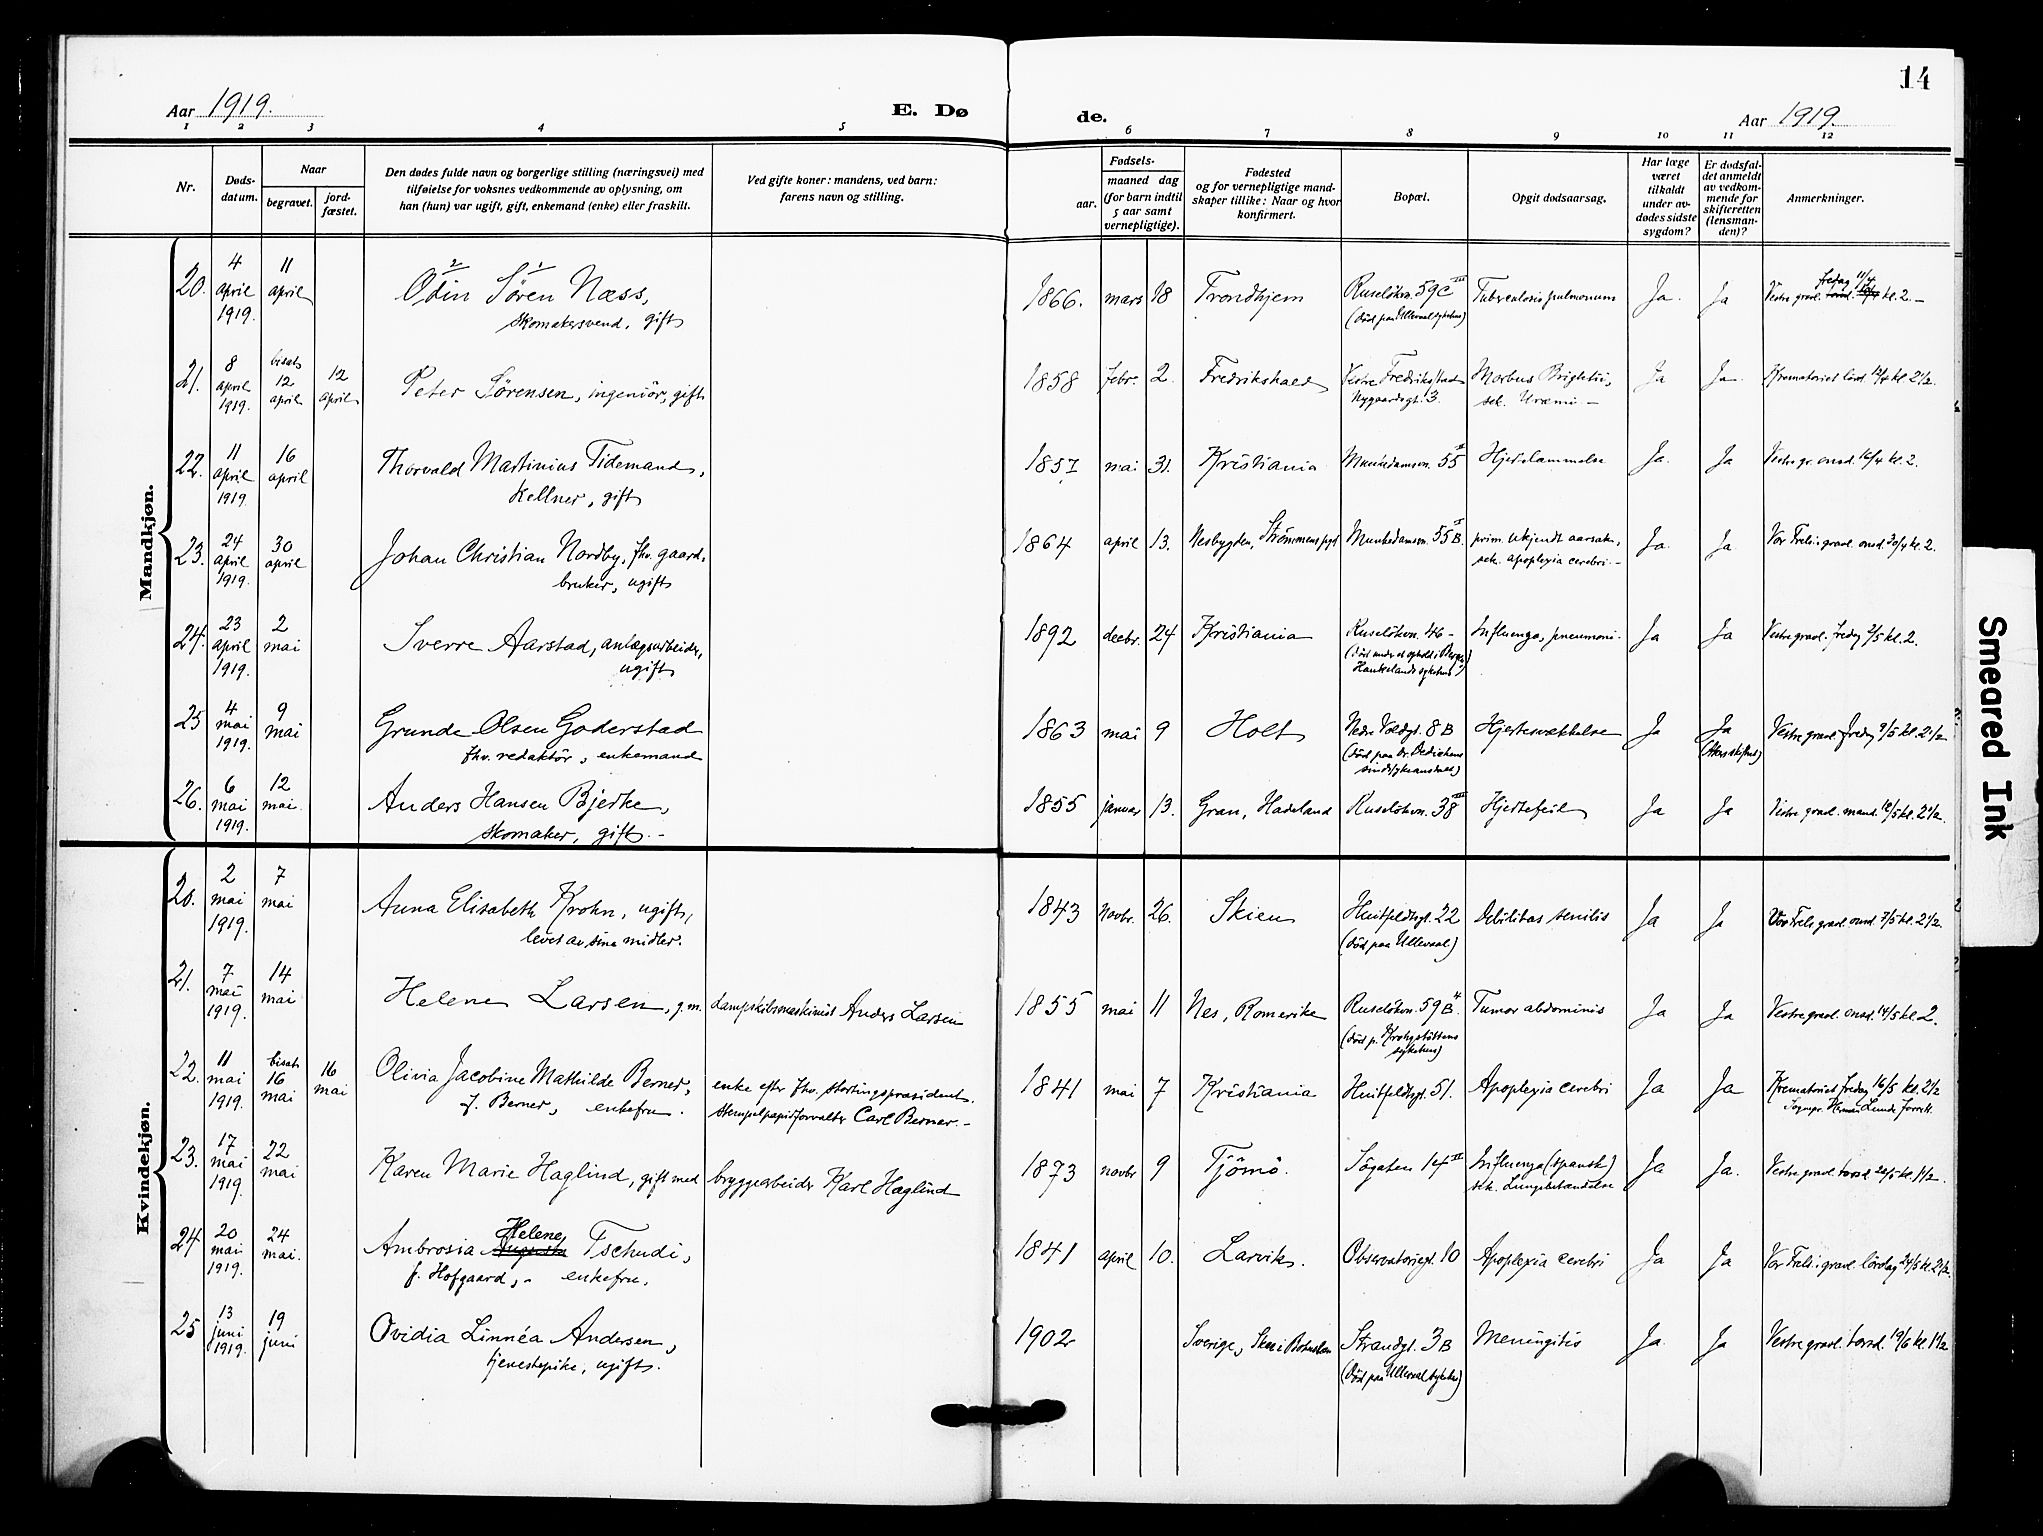 14
Aar 1919.
E. Dø
de.
Aar 1919.
1 2 3 4 5 6 7 8 9 10 11 12
Nr.
Døds-
datum.
Naar
begravet.
jord-
fæstet.
Den dødes fulde navn og borgerlige stilling (næringsvei) med
tilføielse for voksnes vedkommende av oplysning, om
han (hun) var ugift, gift, enkemand (enke) eller fraskilt.
Ved gifte koner: mandens, ved barn:
farens navn og stilling.
Fødsels-
aar.
maaned dag
(for barn indtil
5 aar samt
vernepligtige).
Fødested
og for vernepligtige mand-
skaper tillike: Naar og hvor
konfirmert.
Bopæl.
Opgit dødsaarsag.
Har læge
været
tilkaldt
under av-
dødes sidste
sygdom?
Er dødsfal-
det anmeldt
av vedkom-
mende for
skifteretten
(lensman-
den)?
Anmerkninger.
Mandkjøn.
20. 4 april 1919. 11 april
2 1
Odin Søren Næss,
skomakersvend, gift
1866. mars 18 Trondhjem Ruseløkvn. 59C III
(død paa Ullevaal sykehus)
Tuberculosis pulmonum Ja. Ja Vestre gravl. fredag 11/4 kl. 2.-
21. 8 april 1919. bisat 12 april 12 april
Peter Sørensen, ingeniør, gift
1858 febr. 2. Fredrikshald Vestre Fredriksstad
Nygaardsgt. 3.
Morbus Brightii,
sek. Uræmi.-
Ja Ja Krematoriet lørd. 12/4 kl 2 1/2.
22. 11 april 1919. 16 april
Thorvald Martinius Tidemand,
kellner, gift
1857 mai 31. Kristiania Munkedamsvn. 55 II Hjertelammelse Ja. Ja Vestre gr. onsd. 16/4 kl. 2.
23. 24 april 1919. 30 april
Johan Christian Nordby, fhv. gaard-
bruker, ugift
1864 april 13. Nesbygden, Strømmens pgd. Munkedamsvn. 55 B. I
prim. ukjendt aarsak,
sek. apoplexia cerebri.-
Ja. Ja. Vor Frels. gravl. onsd. 30/4 kl. 2.
24. 23 april 1919. 2 mai
Sverre Aarstad, anlægsarbeider,
ugift
1892 decbr. 24 Kristiania Ruseløkvn. 46-
(død under et ophold i Bergen
Haukelands sykehus)
Influenza, pneumoni. Ja Ja Vestre gravl. fredag 2/5 kl. 2.
25 4 mai 1919. 9 mai
Grunde Olsen Goderstad
fhv. redaktør, enkemand
1863 mai 9 Holt Nedre Voldgt. 8 B
(død paa Dr. Dedichens
sindssykeanstalt)
Hjertesvækkelse Ja Ja Vestre gravl. fredag 9/5 kl. 2 1/2
26. 6 mai 1919. 12 mai.
Anders Hansen Bjerke,
skomaker, gift.-
1855 januar 13. Gran, Hadeland Ruseløkvn. 38 III Hjertefeil Ja Ja Vestre gravl. mand. 12/5 kl. 2 1/2.
Kvindekjøn.
20. 2 mai 1919. 7 mai
Anna Elisabeth Krohn, ugift,
levet av sine midler.
1843 Novbr. 26. Skien Huitfeldtsgt. 22
(død paa Ullevaal)
Debilitas senilis Ja Ja Vor Frels. gravl. onsd. 7/5 kl. 2 1/2.
21. 7 mai 1919. 14 mai
Helene Larsen, g.m. dampskibsmaskinist Anders Larsen
1855 mai 11 Nes, Romerike Ruseløkvn. 59 B. 4
(død p. Krohgstøttens
sykehus)
Tumor abdominis Ja Ja Vestre gravl. onsd. 14/5 kl 2.
22. 11 mai 1919. bisat 16 mai 16 mai
Olivia Jacobine Mathilde Berner,
f. Berner, enkefru.
enke efter fhv. stortingspræsident.
stempelpapirforvalter Carl Berner.-
1841 mai 7 Kristiania Huitfeldtsgt. 51. Apoplexia cerebri Ja Ja Krematoriet fredag 16/5 kl. 2 1/2
Sognepr. Herman Lunde forrett.
23. 17 mai 1919. 22 mai
Karen Marie Haglind, gift med bryggearbeider Karl Haglind
1873 novbr 9 Tjømø. Søgaten 14 II Influenza (spansk)
sek. Lungebetændelse
Ja Ja. Vestre gravl. torsd. 22/5 kl. 1 1/2.
24 20 mai 1919. 24 mai.
Ambrosia Helene Tschudi,
f. Hofgaard,- enkefru.
1841 april 10. Larvik. Observatoriegt. 10 Apoplexia cerebri Ja Ja Vor Frels. gravl. lørdag 24/5 kl. 2 1/2.
25 13 juni 1919. 19 juni
Ovidia Linnéa Andersen,
tjenestepike, ugift.
1902 Sverige, Skee i Bohuslen Strandgt. 3 B
(død paa Ullevaal sykehus)
Meningitis Ja. Ja Vestre gravl. torsd. 19/6 kl. 1 1/2
Smeared Ink